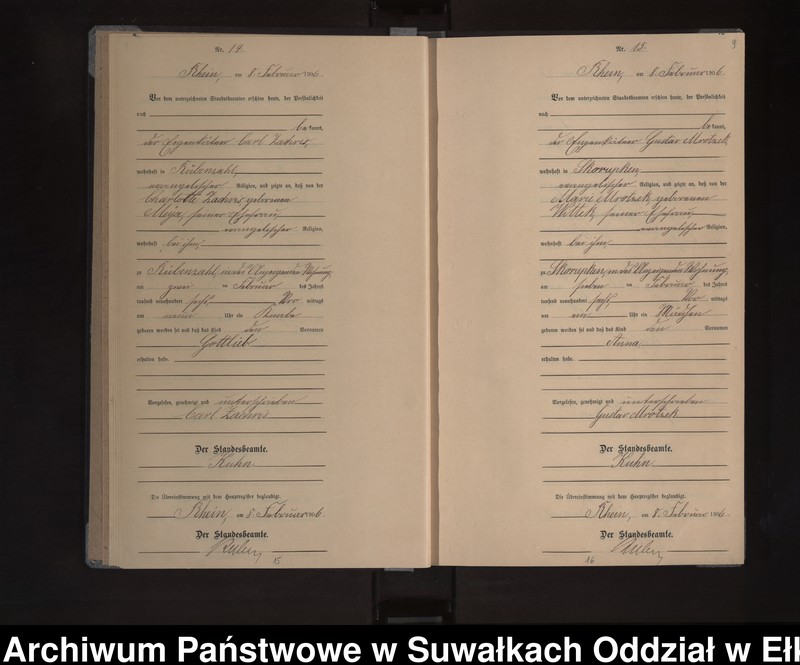 Nr. 14.
Rhein, am 8. Februar 1906.
Vor dem unterzeichneten Standesbeamten erschien heute, der Persönlichkeit
nach
be kannt,
der Eigenkätner Carl
wohnhaft in Rübenzahl,
evangelischer Religion, und zeigte an, daß von der
Charlotte geborenen
seiner Ehefrau,
evangelischer Religion,
wohnhaft bei ihm,
zu Rübenzahl, in des Anzeigenden Wohnung,
am zwei ten Februar des Jahres
tausend neunhundert sechs, Vor mittags
um neun Uhr ein Knabe
geboren worden ist und daß das Kind den Vornamen
Gottlieb
erhalten habe.
Vorgelesen, genehmigt und unterschrieben
Carl
Der Standesbeamte.
Kuhn
Die Übereinstimmung mit dem Hauptregister beglaubigt.
Rhein, am 8. Februar 1906.
Der Standesbeamte.
15
9
Nr. 15.
Rhein, am 8. Februar 1906.
Vor dem unterzeichneten Standesbeamten erschien heute, der Persönlichkeit
nach
be kannt,
der Eigenkätner Gustav Mrotzek
wohnhaft in Skorupken
evangelischer Religion, und zeigte an, daß von der
Marie Mrotzek geborenen
seiner Ehefrau,
evangelischer Religion,
wohnhaft bei ihm
zu Skorupken, in des Anzeigenden Wohnung,
am sieben ten Februar des Jahres
tausend neunhundert sechs, Vor mittags
um Uhr ein Mädchen
geboren worden ist und daß das Kind den Vornamen
Anna
erhalten habe.
Vorgelesen, genehmigt und unterschrieben
Gustav Mrotzek
Der Standesbeamte.
Kuhn
Die Übereinstimmung mit dem Hauptregister beglaubigt.
Rhein, am 8. Februar 1906.
Der Standesbeamte.
16
Archiwum Państwowe w Suwałkach Oddział w Ełk